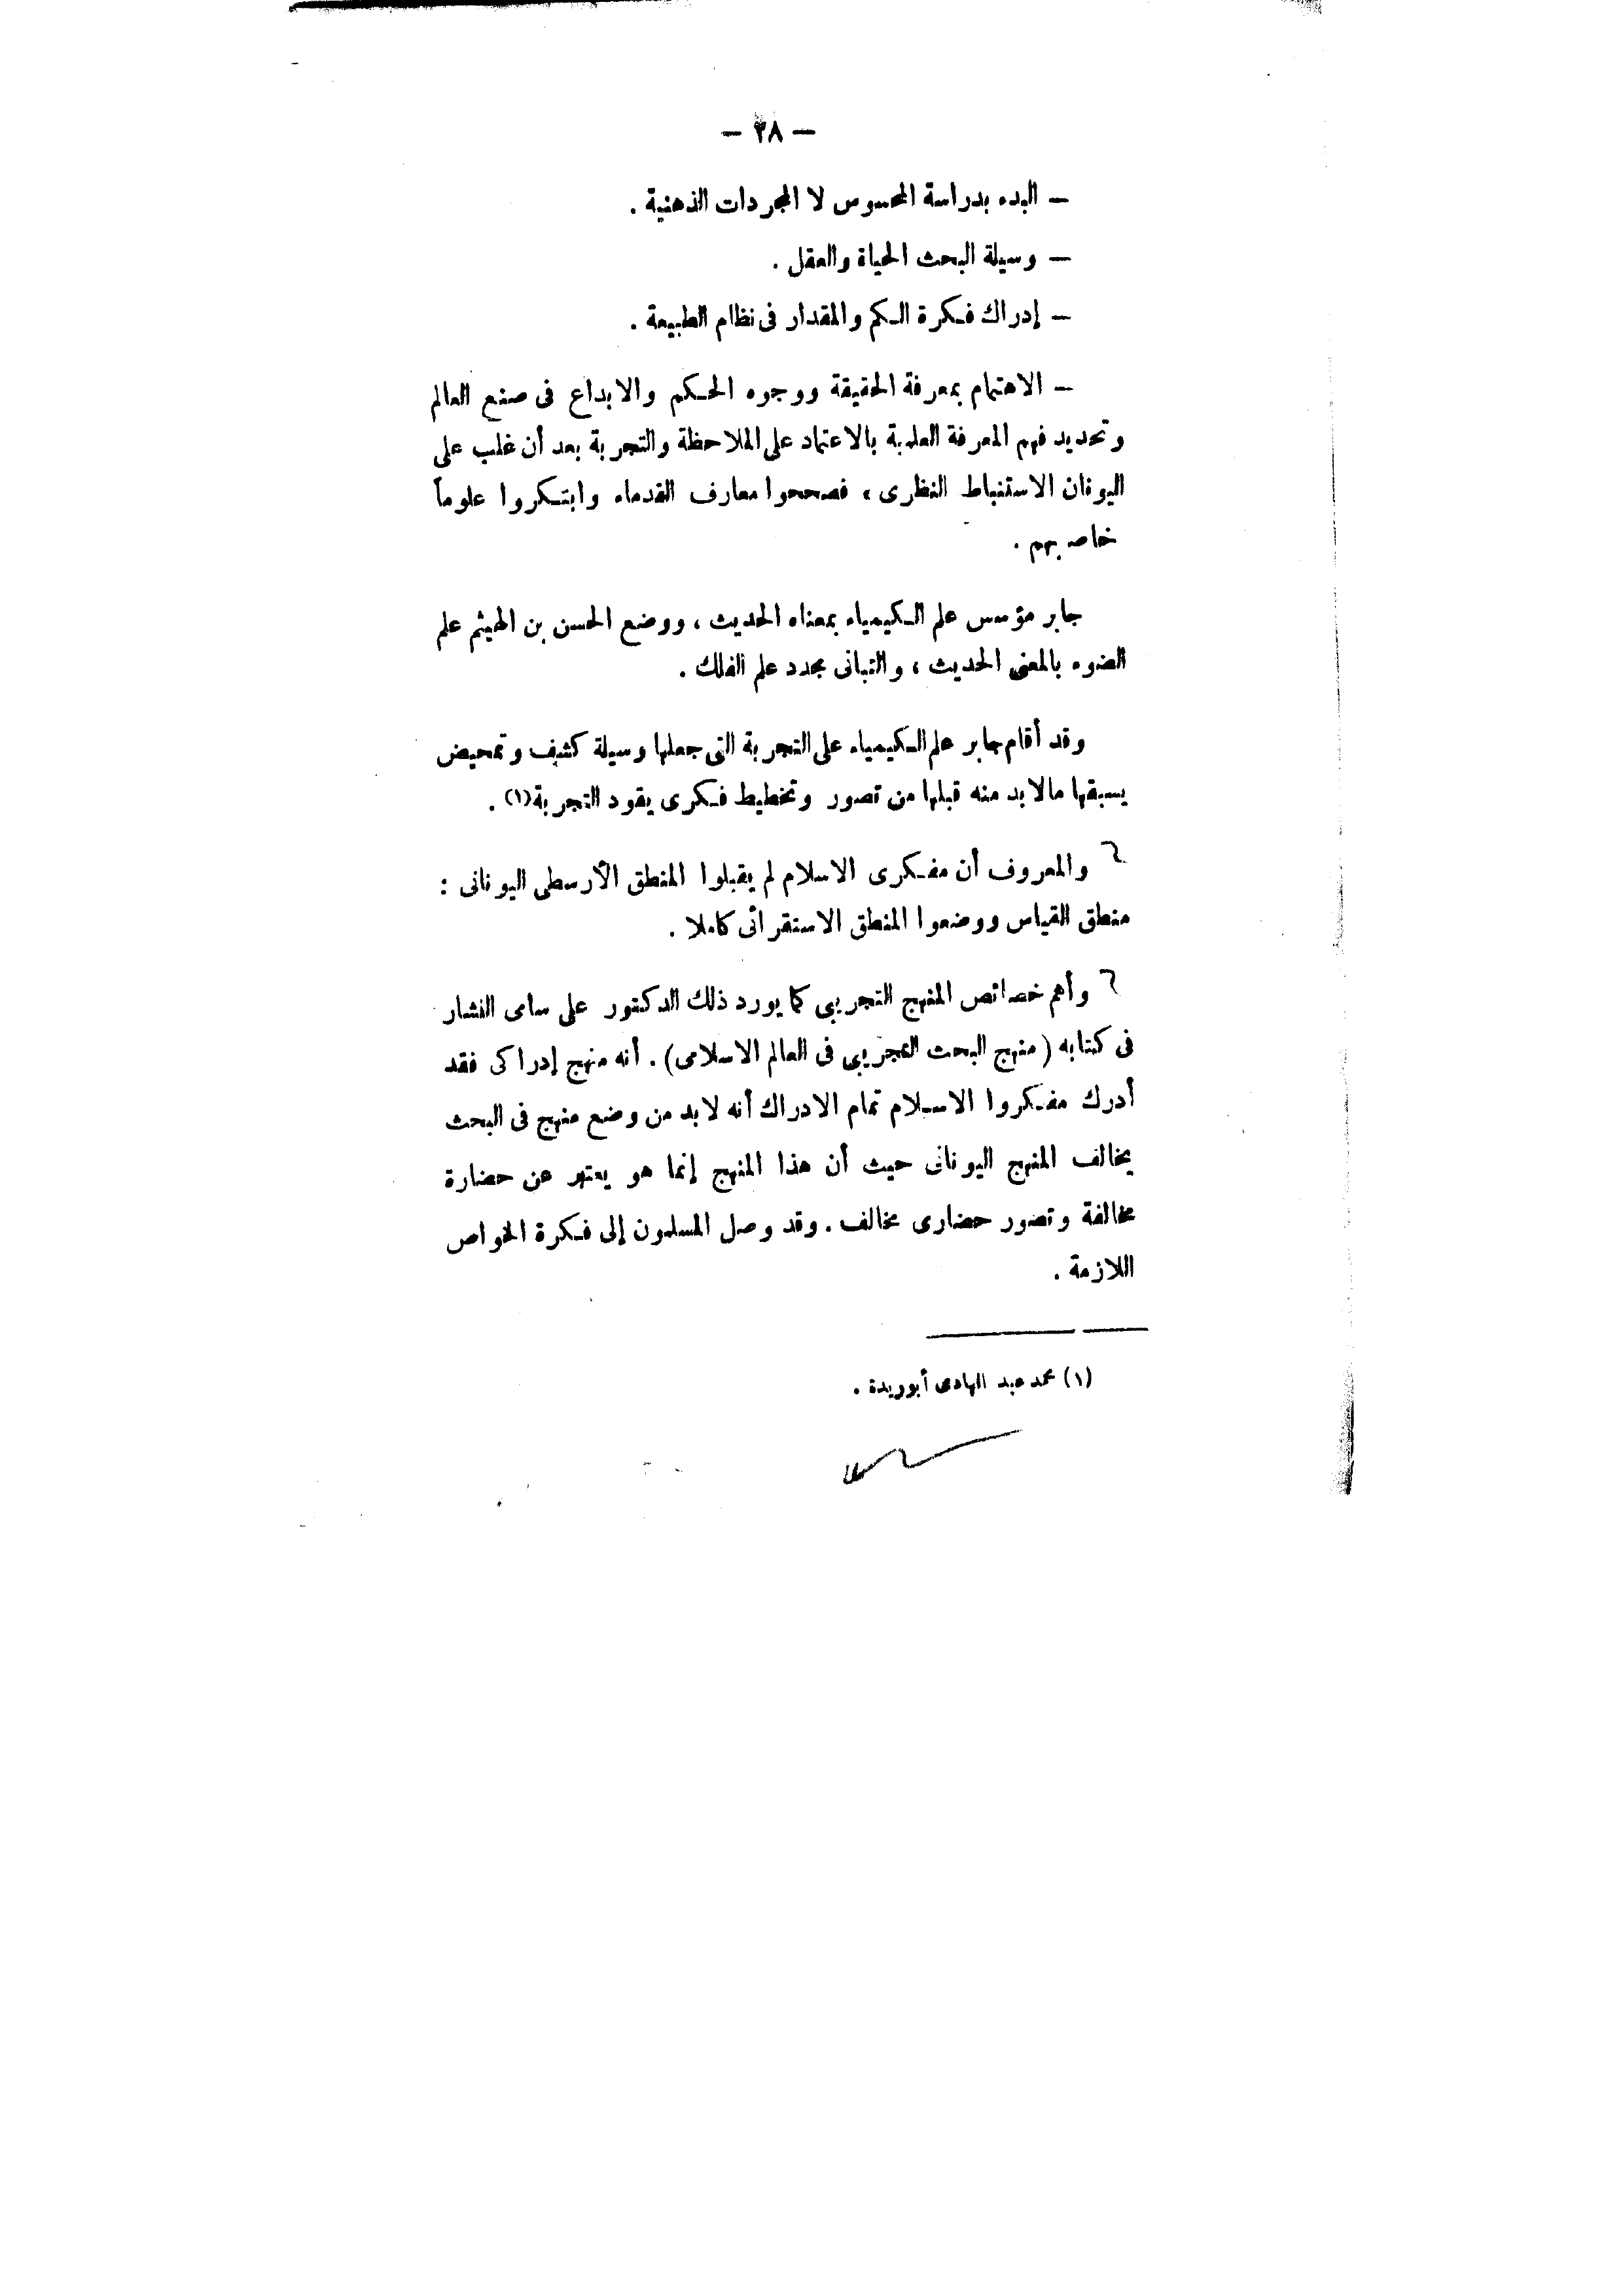 — ٣٨ —
— البدء بدراسة المحسوس لا المجردات الذهنية .
— وسيلة البحث الحياة والعقل .
— إدراك فكرة الكم والمقدار فى نظام الطبيعة .
— الاهتمام بمعرفة الحقيقة ووجوه الحكم والابداع فى صنع العالم
وتحديد فهم المعرفة العلمية بالاعتماد على الملاحظة والتجربة بعد أن غلب على
اليونان الاستنباط النظرى ، فصححوا معارف القدماء وابتكروا علوماً
خاصه بهم .
جابر مؤسس علم الكيمياء بمعناه الحديث ، ووضع الحسن بن الهيثم علم
الضوء بالمعنى الحديث ، والتبانى مجدد علم الفلك .
وقد أقام جابر علم الكيمياء على التجربة التى جعلها وسيلة كشف وتمحيض
يسبقها مالا بد منه قبلها من تصور وتخطيط فكرى يقود التجربة(١) .
والمعروف أن مفكرى الاسلام لم يقبلوا المنطق الأرسطى اليونانى :
منطق القياس ووضعوا المنطق الاستقرائى كاملا .
وأهم خصائص المنهج التجريبى كما يورد ذلك الدكتور على سامى النشار
فى كتابه ( منهج البحث التجريبى فى العالم الاسلامى) . أنه منهج إدراكى فقد
أدرك مفكروا الاسلام تمام الادراك أنه لابد من وضع منهج فى البحث
يخالف المنهج اليونانى حيث أن هذا المنهج إنما هو يعتبر عن حضارة
مخالفة وتصور حضارى مخالف . وقد وصل المسلمون إلى فكرة الخواص
اللازمة .
(١) محمد عبد الهادى أبوريدة .